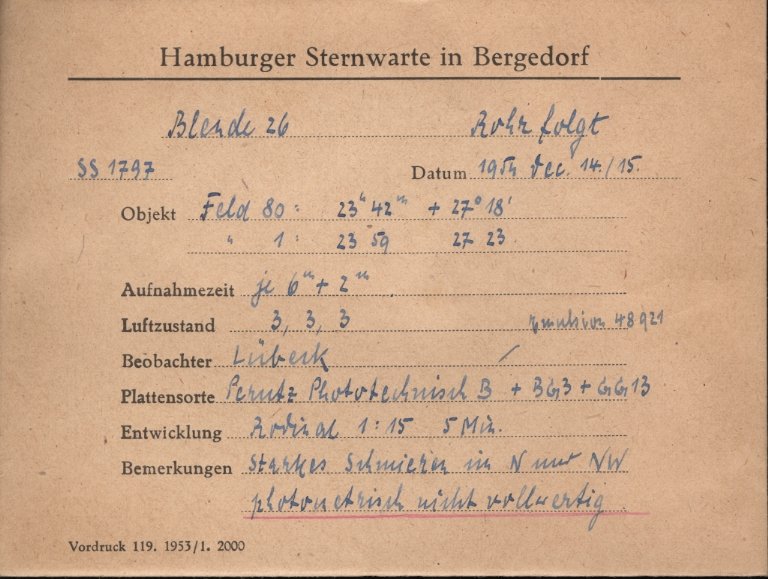 Hamburger Sternwarte in Bergedorf
Blende 26 Rohr folgt
SS 1797 Datum 1954 Dec. 14./15.
Objekt Feld 80: 23ʰ 42ᵐ + 27° 18'
" 1: 23 59 27 23
Aufnahmezeit je 6ᵐ + 2ᵐ
Luftzustand 3, 3, 3 Emulsion 48921
Beobachter Lübeck
Plattensorte Perutz Phototechnisch B + BG3 + GG13
Entwicklung Rodinal 1:15 5 Min.
Bemerkungen Starkes Schmieren im N und NW
photometrisch nicht vollwertig
Vordruck 119. 1953/1. 2000